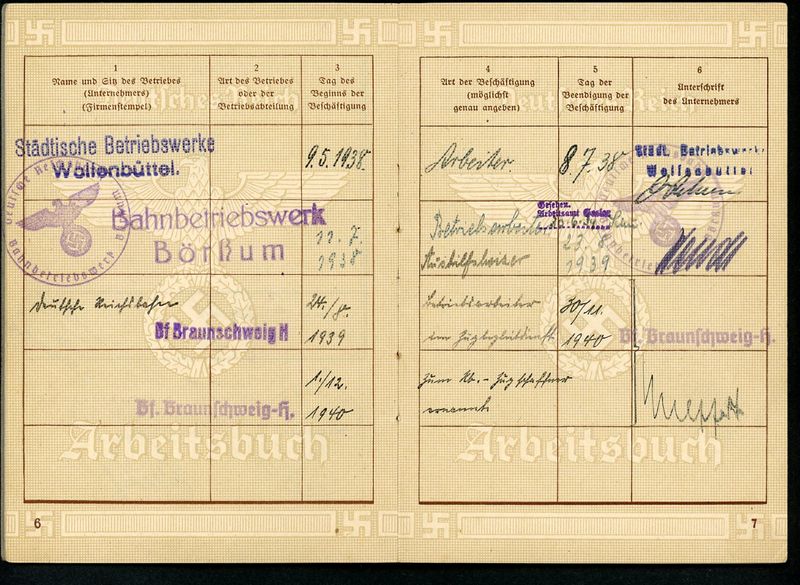 1
Name und Sitz des Betriebes
(Unternehmers)
(Firmenstempel)
2
Art des Betriebes
oder der
Betriebsabteilung
3
Tag des
Beginns der
Beschäftigung
Städtische Betriebswerke
Wolfenbüttel.
9.5.1938.
Bahnbetriebswerk
Börßum
11. 7.
1938
Deutsche Reichsbahn
Bf Braunschweig H
24./8.
1939
1./12.
Bf. Braunschweig-H.
1940
Arbeitsbuch
6
4
Art der Beschäftigung
(möglichst
genau angeben)
5
Tag der
Beendigung der
Beschäftigung
6
Unterschrift
des Unternehmers
Arbeiter.
8.7.38
Städt. Betriebswerke
Wolfenbüttel
Gesehen.
Arbeitsamt Goslar
Betriebsarbeiter
23. 8.
1939
Betriebsarbeiter
im Zugbegleitdienst
30/11.
1940
Bf. Braunschweig-H.
zum Rb.-Zugschaffner
ernannt
Arbeitsbuch
7